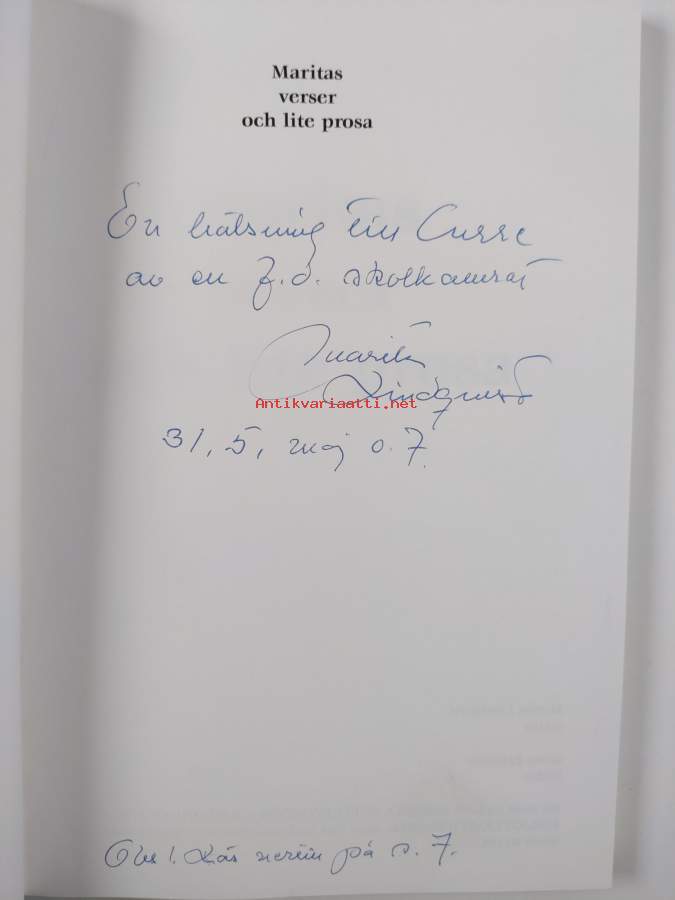 Maritas
verser
och lite prosa
En hälsning till Curre
av en f.d. skolkamrat
Marita
Lindqvist
Antikvariaatti.net
31, 5, maj 0.7.
Obs! Läs versen på s. 7.